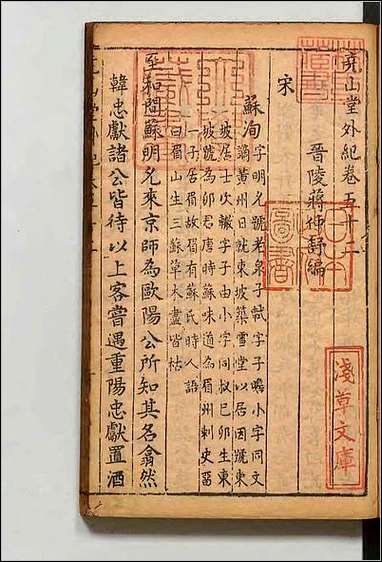 堯山堂外紀卷五十二
晉陵蔣仲舒編
宋
蘇洵
字明允號老泉子軾字子瞻小字同文
謫黃州日就東坡築雪堂以居因號東
坡居士次轍字子由小字同叔巳卯生東
坡號為卯君唐時蘇味道為眉州刺史留
一子居眉故眉有蘇氏時人語
曰眉山生三蘇草木盡皆枯
至和間蘇明允來京師為歐陽公所知其名翕然
韓忠獻諸公皆待以上客嘗遇重陽忠獻置酒
淺草文庫
圖書